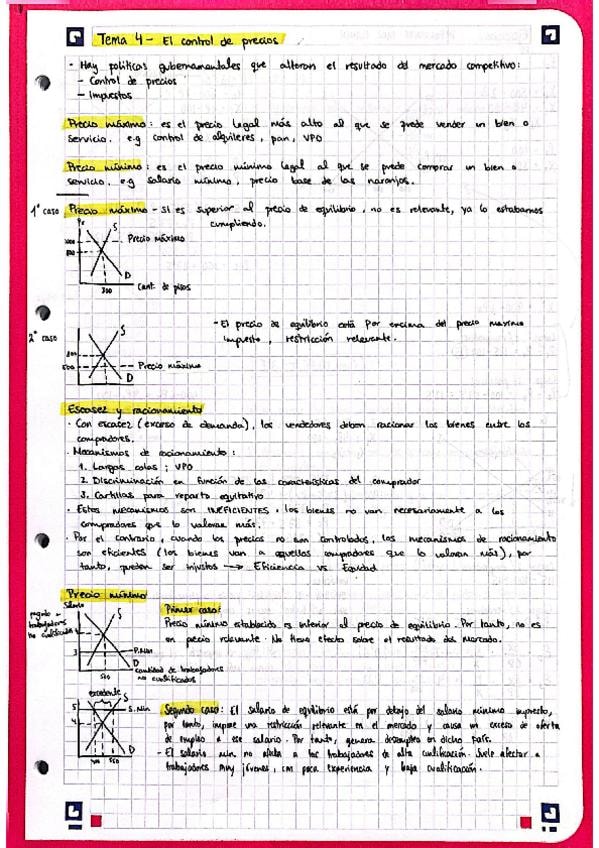 Tema 4 - El control de precios
- Hay políticas gubernamentales que alteran el resultado del mercado competitivo:
- Control de precios
- Impuestos
Precio máximo: es el precio legal más alto al que se puede vender un bien o
servicio. e.g control de alquileres, pan, VPO
Precio mínimo: es el precio mínimo legal al que se puede comprar un bien o
servicio. e.g salario mínimo, precio base de las naranjas.
1º caso
Precio máximo - Si es superior al precio de equilibrio, no es relevante, ya lo estabamos
cumpliendo.
S
Precio máximo
D
Cant. de pisos
300
2º caso
- El precio de equilibrio está por encima del precio maximo
impuesto, restricción relevante.
S
800
600
Precio máximo
D
Escasez y racionamiento
· Con escasez (exceso de demanda), los vendedores deben racionar los bienes entre los
compradores.
· Mecanismos de racionamiento:
1. Largas colas; VPO
2. Discriminación en función de las características del comprador
3. Cartillas para reparto equitativo
· Estos mecanismos son INEFICIENTES. los bienes no van necesariamente a los
compradores que lo valoran más.
· Por el contrario, cuando los precios no son controlados, los mecanismos de racionamiento
son eficientes (los bienes van a aquellos compradores que lo valoran más), por
tanto, pueden ser injustos → Eficiencia vs Equidad
Precio mínimo
Salario
trabajadores
no cualificados
S
3
P.Min
D
500
cantidad de trabajadores
no cualificados
Primer caso:
Precio mínimo establecido es inferior al precio de equilibrio. Por tanto, no es
un precio relevante. No tiene efecto sobre el resultado del mercado.
excedente
S
5
S.Min
4
D
400
550
Segundo caso: El salario de equilibrio está por debajo del salario minimo impuesto,
por tanto, impone una restricción relevante en el mercado y causa un exceso de oferta
de empleo a ese salario. Por tanto, genera desempleo en dicho país.
- El salario min. no afecta a los trabajadores de alta cualificación. Suele afectar a
trabajadores muy jóvenes, con poca experiencia y baja cualificación.